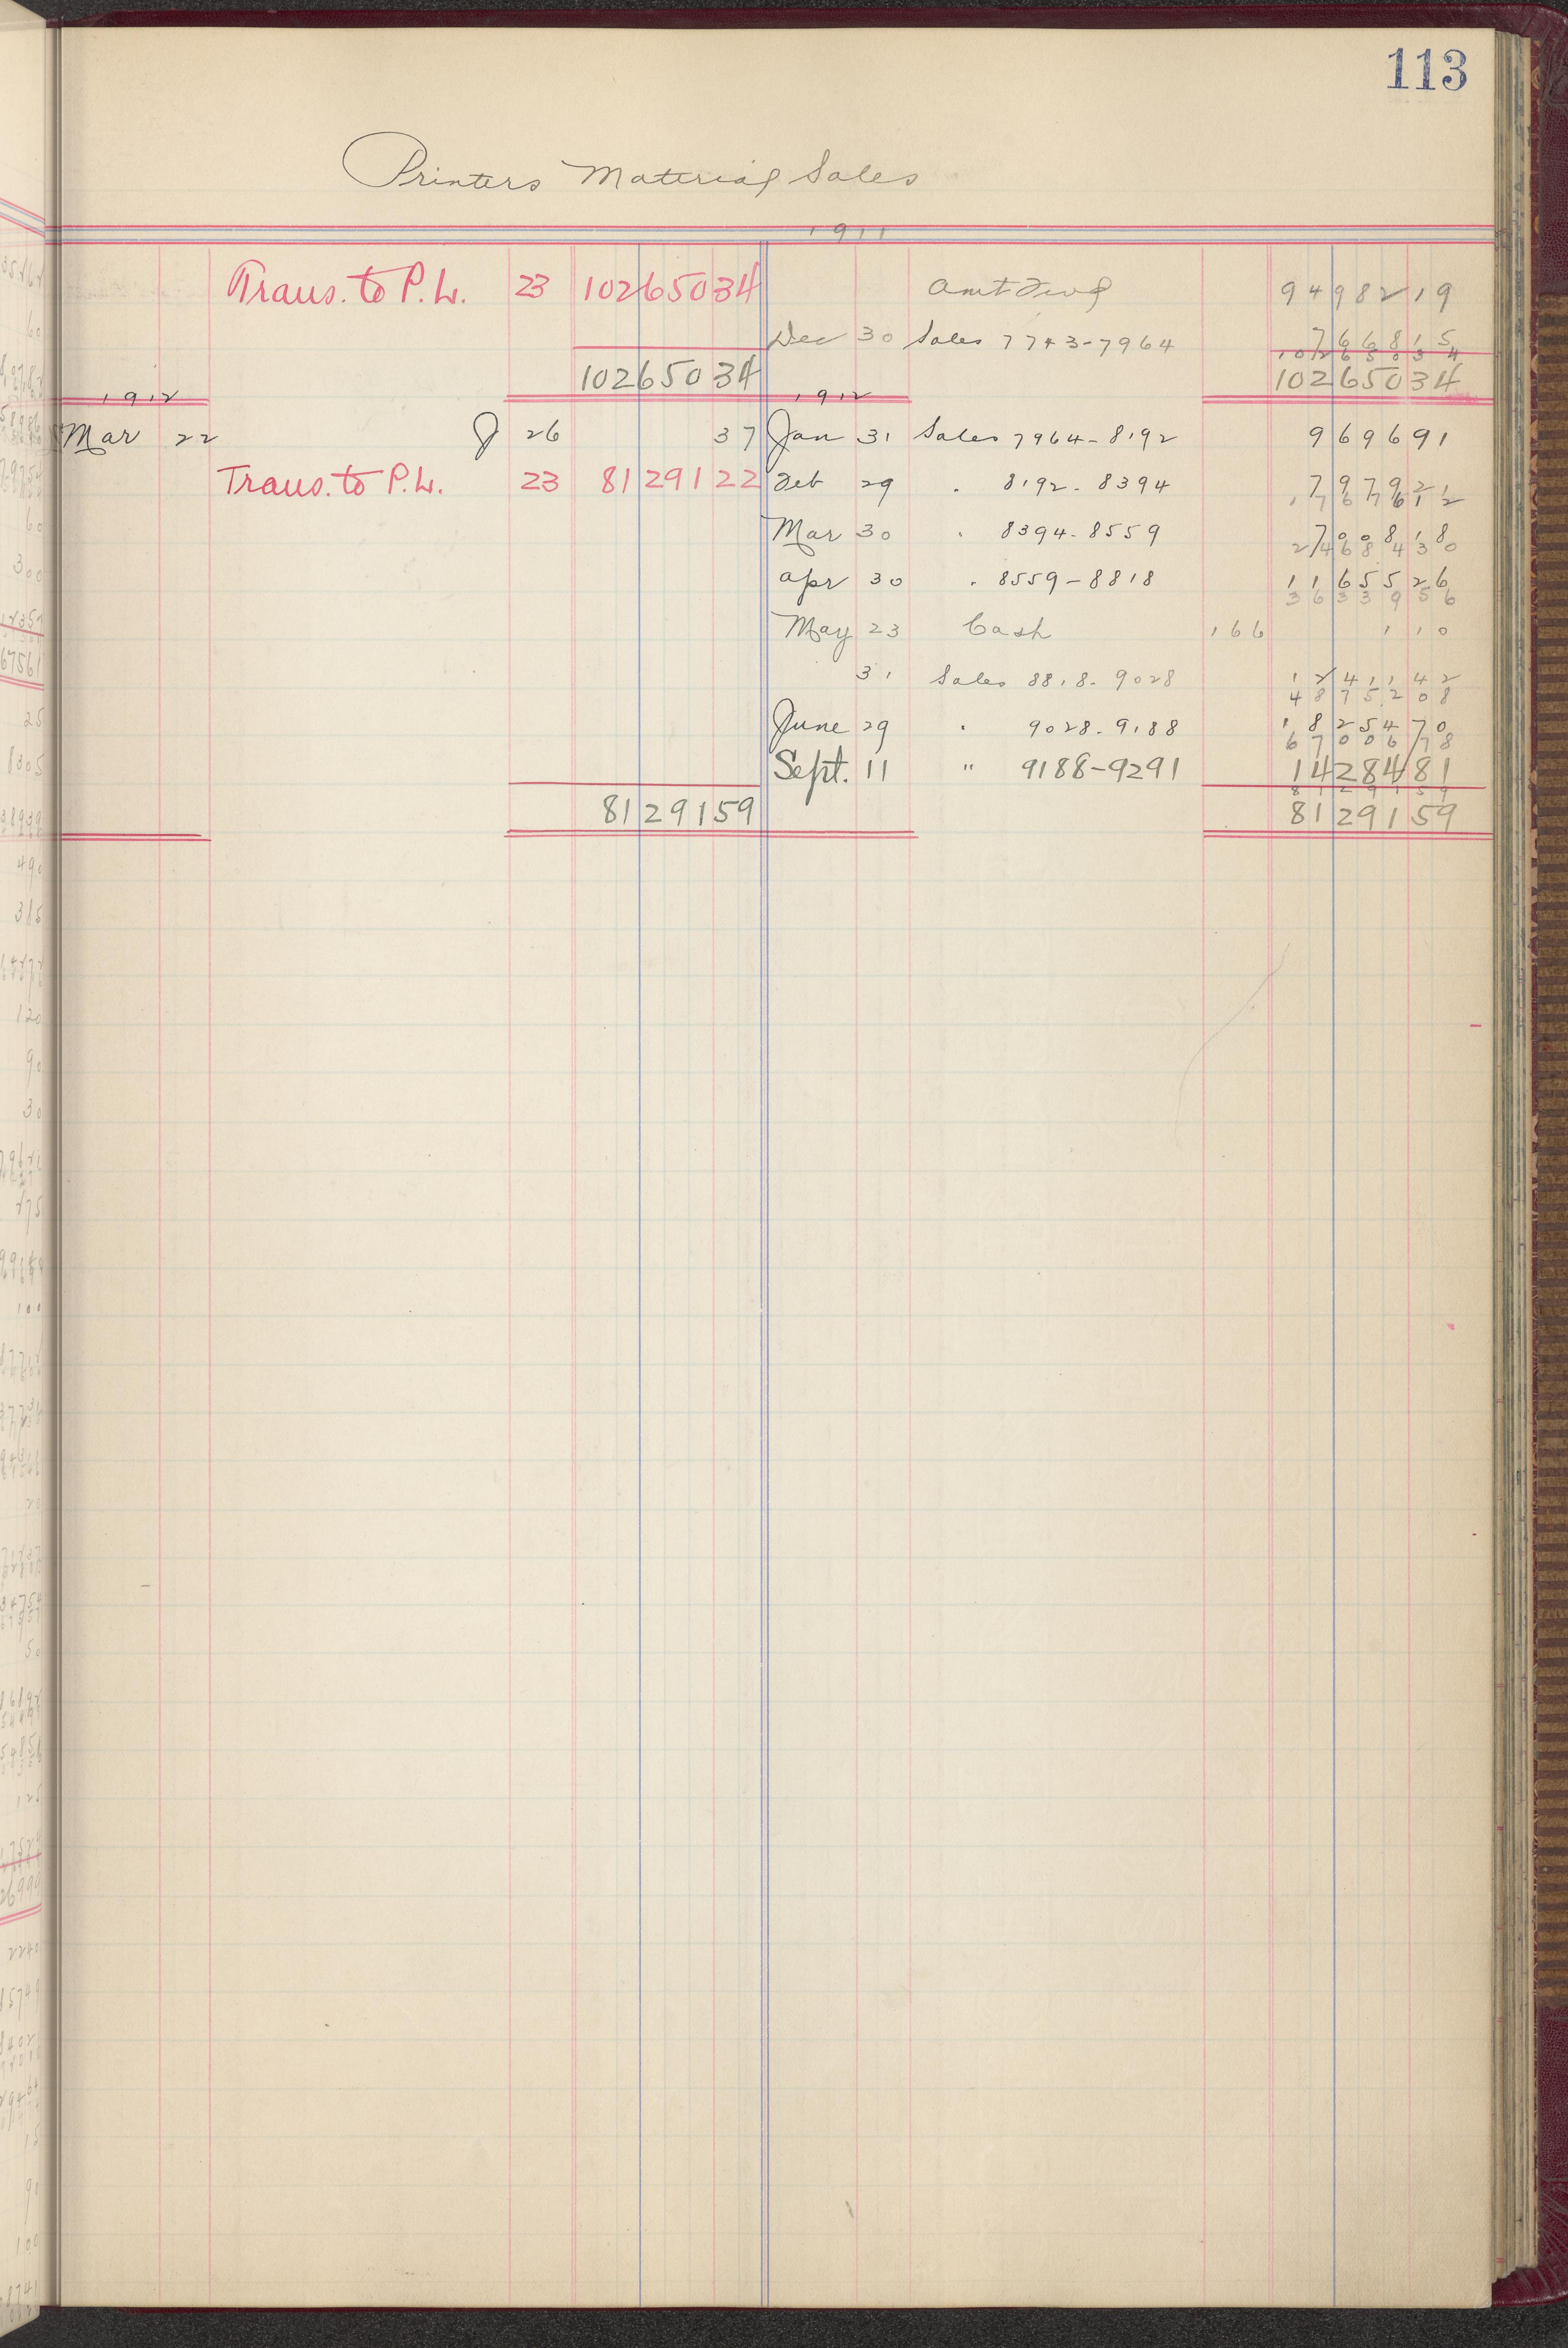 113
Printers Material Sales
1911
Trans. to P.L. 23 10265034 Amt Fwd 9498219
Dec 30 Sales 7743-7964 766815
10265034
10265034 10265034
1912 1912
Mar 22 J 26 37 Jan 31 Sales 7964-8192 969691
Trans. to P.L. 23 8129122 Feb 29 " 8192-8394 797921
1767612
Mar 30 " 8394-8559 700818
2468430
Apr 30 " 8559-8818 1165526
3633956
May 23 Cash 166 110
31 Sales 8818-9028 1241142
4875208
June 29 " 9028-9188 1825470
6700678
Sept. 11 " 9188-9291 1428481
8129159
8129159 8129159